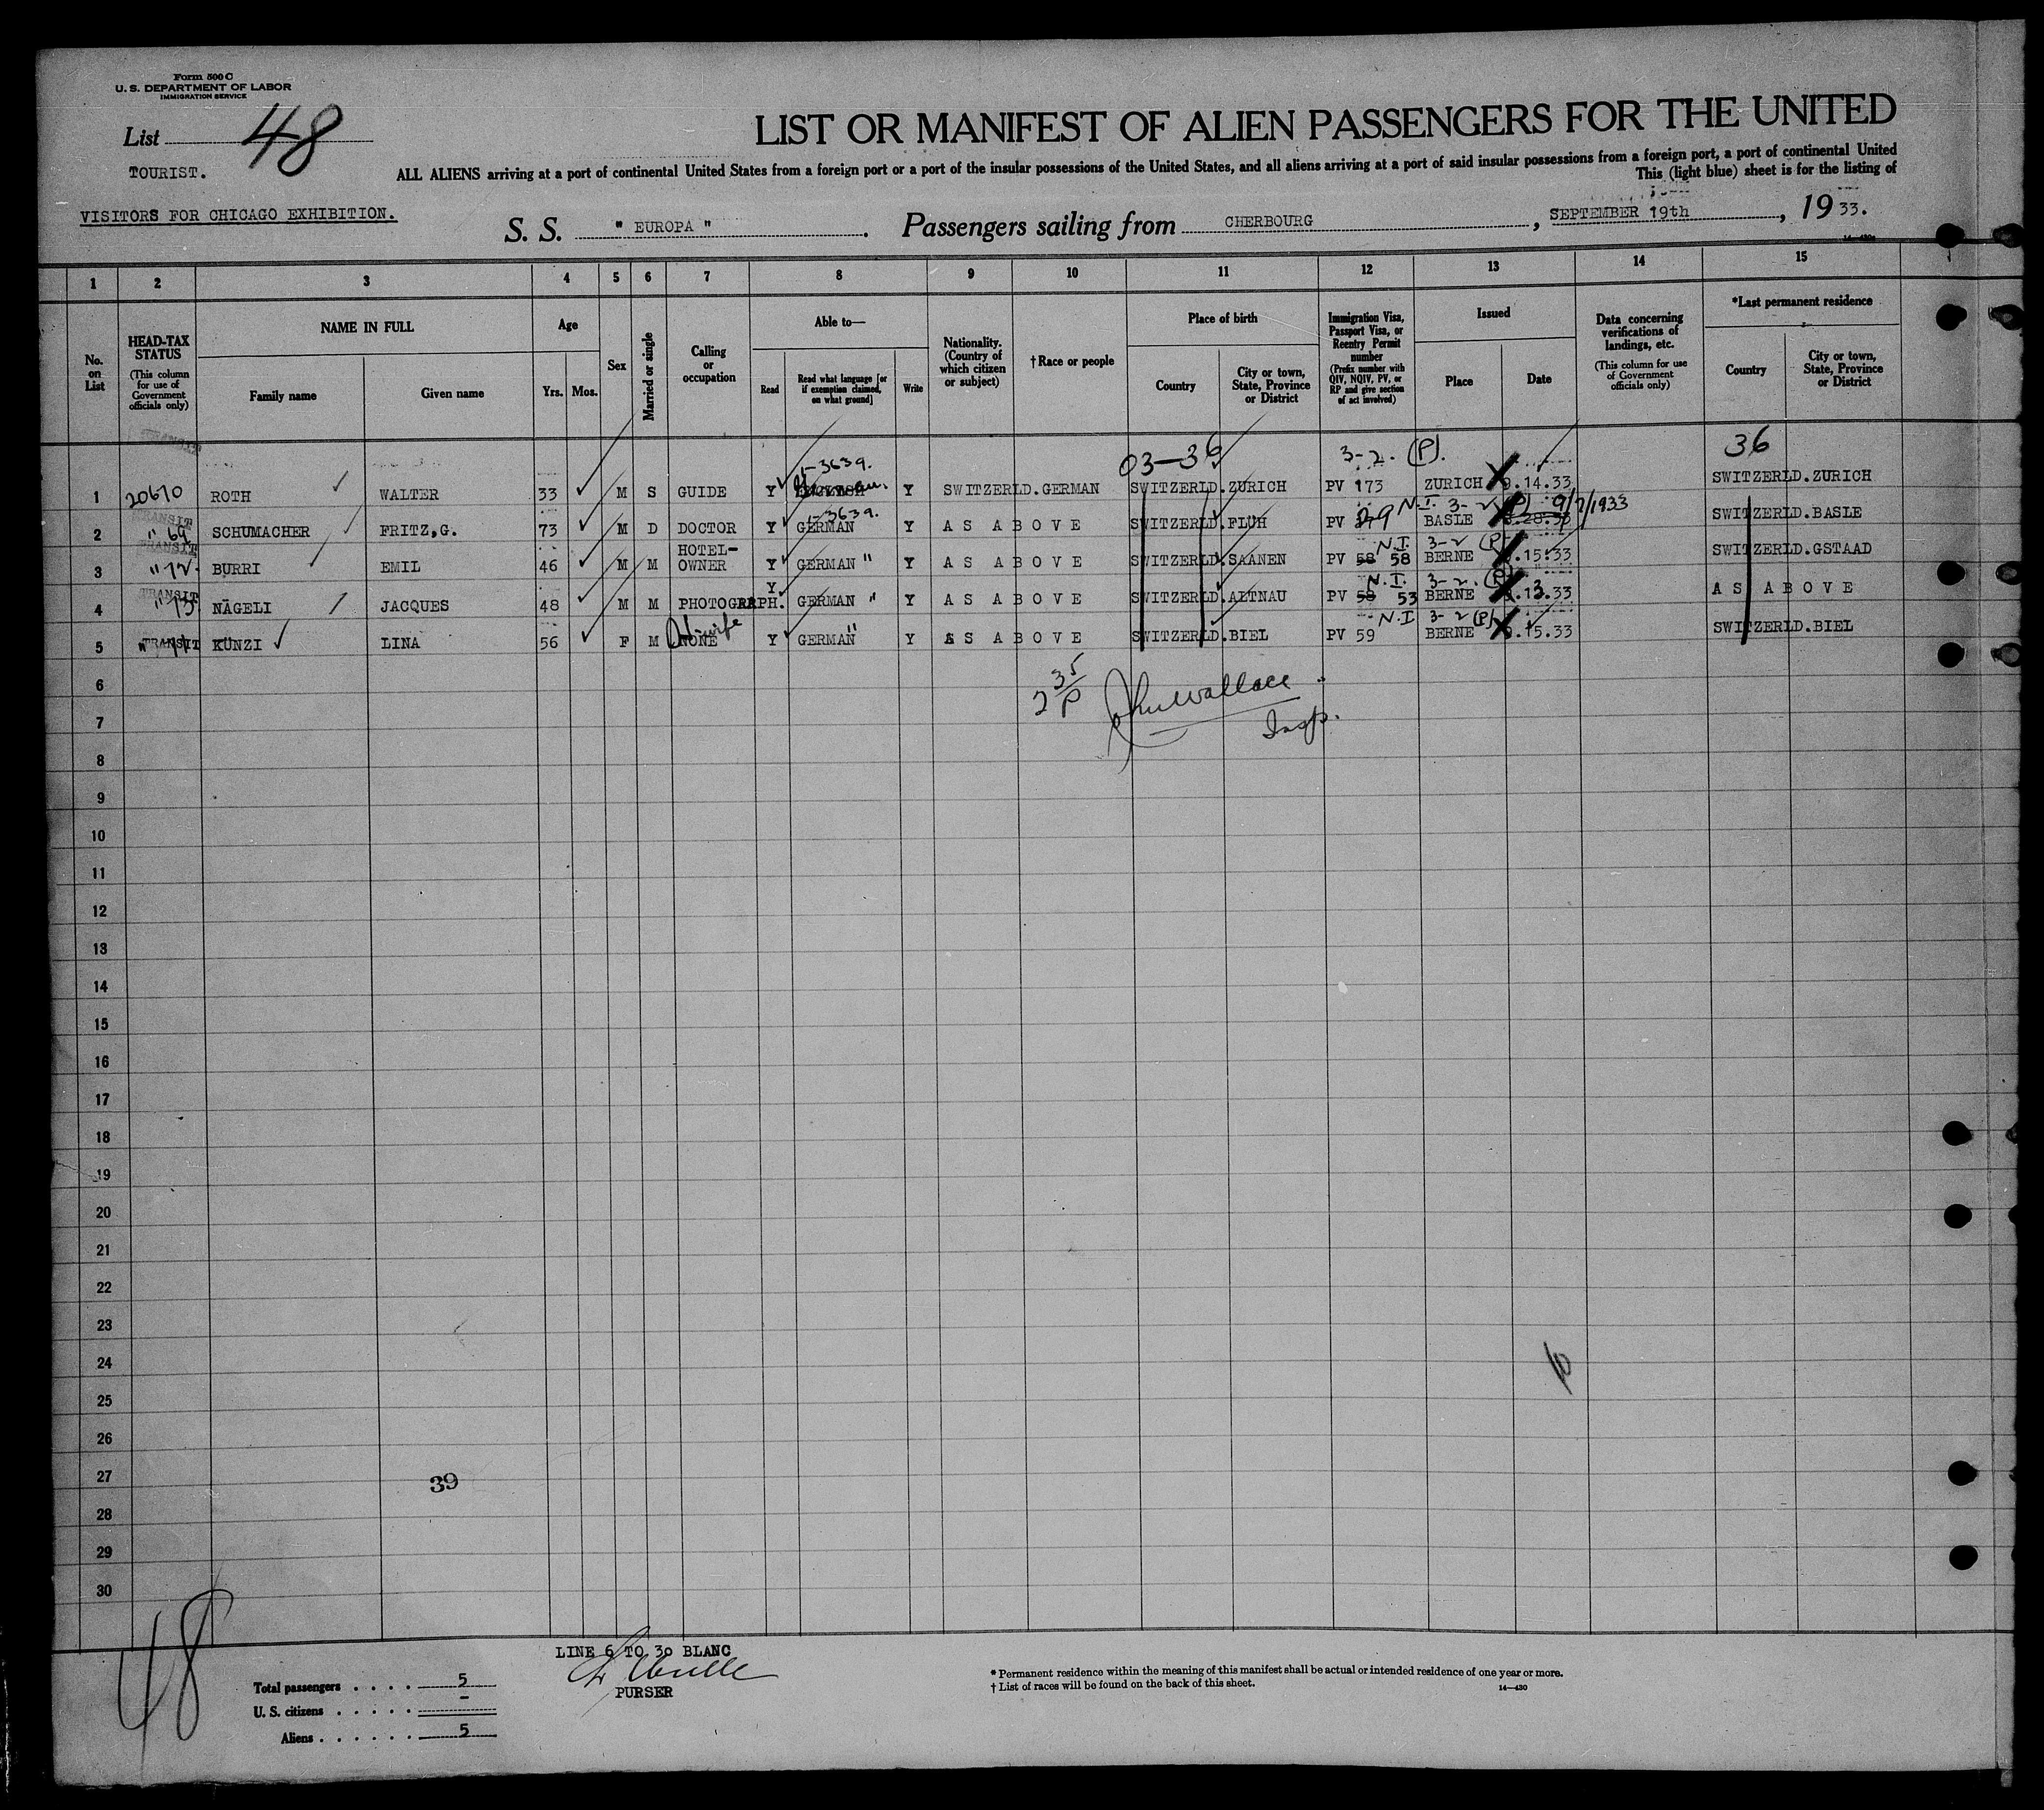 Form 500 C
U. S. DEPARTMENT OF LABOR
IMMIGRATION SERVICE
List 48
TOURIST.
VISITORS FOR CHICAGO EXHIBITION.
LIST OR MANIFEST OF ALIEN PASSENGERS FOR THE UNITED
ALL ALIENS arriving at a port of continental United States from a foreign port or a port of the insular possessions of the United States, and all aliens arriving at a port of said insular possessions from a foreign port, a port of continental United
This (light blue) sheet is for the listing of
S. S. " EUROPA " . Passengers sailing from CHERBOURG , SEPTEMBER 19th , 19 33.
1 2 3 4 5 6 7 8 9 10 11 12 13 14 15
No. on List
HEAD-TAX STATUS
(This column for use of Government officials only)
NAME IN FULL
Family name
Given name
Age
Yrs. Mos.
Sex
Married or single
Calling or occupation
Able to—
Read
Read what language [or if exemption claimed, on what ground]
Write
Nationality. (Country of which citizen or subject)
† Race or people
Place of birth
Country
City or town, State, Province or District
Immigration Visa, Passport Visa, or Reentry Permit number
(Prefix number with QIV, NQIV, PV, or RP and give section of act involved)
Issued
Place
Date
Data concerning verifications of landings, etc.
(This column for use of Government officials only)
*Last permanent residence
Country
City or town, State, Province or District
TRANSIT 03-36 3-2. (P). 36
1-3639.
1 20670 ROTH WALTER 33 M S GUIDE Y ENGLISH German. Y SWITZERLD.GERMAN SWITZERLD.ZURICH PV 173 ZURICH 9.14.33 SWITZERLD.ZURICH
TRANSIT 1-3639. N.I. 3-2 (P) 9/7/1933
2 " SCHUMACHER FRITZ,G. 73 M D DOCTOR Y GERMAN Y AS ABOVE SWITZERLD.FLUH PV BASLE SWITZERLD.BASLE
TRANSIT HOTEL- N.I. 3-2 (P)
3 " 72. BURRI EMIL 46 M M OWNER Y GERMAN " Y AS ABOVE SWITZERLD.SAANEN PV 58 58 BERNE 9.15.33 SWITZERLD.GSTAAD
TRANSIT N.I. 3-2. (P)
4 " 73. NÄGELI JACQUES 48 M M PHOTOGRAPH. Y GERMAN " Y AS ABOVE SWITZERLD.ALTNAU PV 58 53 BERNE 9.13.33 AS ABOVE
H-wife N.I 3-2 (P)
5 " TRANSIT KÜNZI LINA 56 F M NONE Y GERMAN " Y AS ABOVE SWITZERLD.BIEL PV 59 BERNE 9.15.33 SWITZERLD.BIEL
6
2 35/P John Wallace
7
Insp.
8
9
10
11
12
13
14
15
16
17
18
19
20
21
22
23
24
25
26
27
39
28
29
30
48
LINE 6 TO 30 BLANC
PURSER
Total passengers . . . . 5
U. S. citizens . . . . . –
Aliens . . . . . . 5
* Permanent residence within the meaning of this manifest shall be actual or intended residence of one year or more.
† List of races will be found on the back of this sheet.
14—430